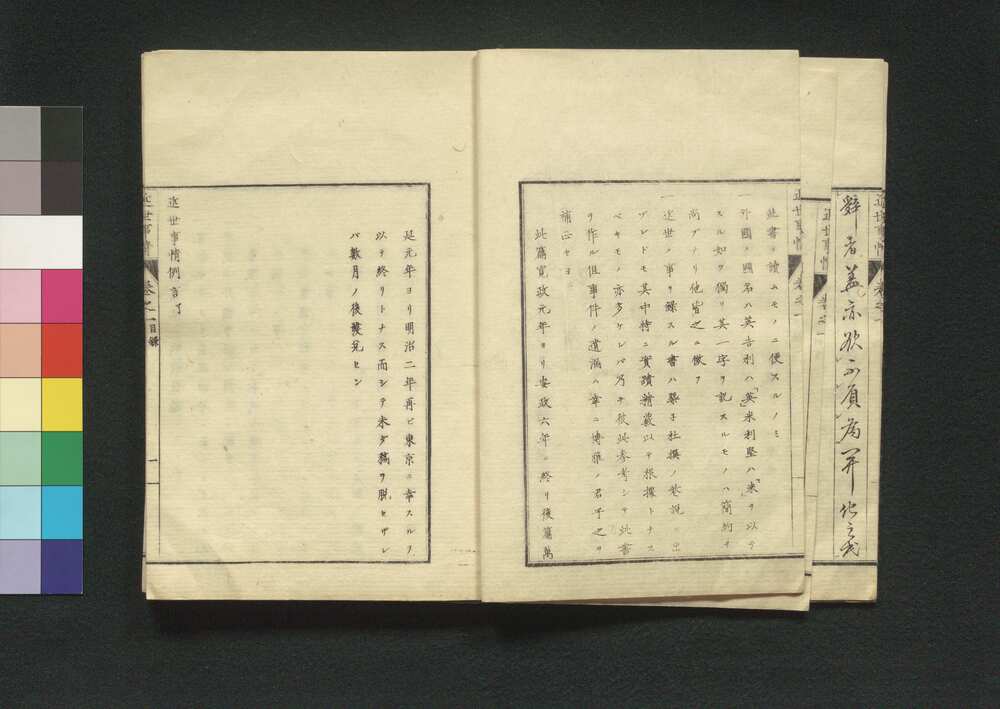 辭者蓋亦欲
近世事情
巻之一
近世事情
巻之一
近世事情
巻之一
此書ヲ讀ムモノニ便スルノミ
一外國ノ國名ハ英吉利ハ「英」米利堅ハ「米」ヲ以テ
スル如ク獨リ其一字ヲ記スルモノハ簡約ヲ
尚ブナリ他皆之ニ倣フ
一近世ノ事ヲ錄スル書ハ槩子杜撰ノ巷説ニ出
ブレドモ其中特ニ實蹟精覈以テ根據トナス
ベキモノ亦多ケレバ乃チ彼此參考シテ此書
ヲ作ル但事件ノ遺漏ハ幸ニ博雅ノ君子之ヲ
補正セヨ
此篇寛政元年ヨリ安政六年ニ終リ後篇萬
延元年ヨリ明治二年再ビ東京ニ幸スルヲ
以テ終リトナス而シテ未ダ稿ヲ脱セザレ
バ數月ノ後發兌セン
近世事情例言了
近世事情
巻之一目錄
一